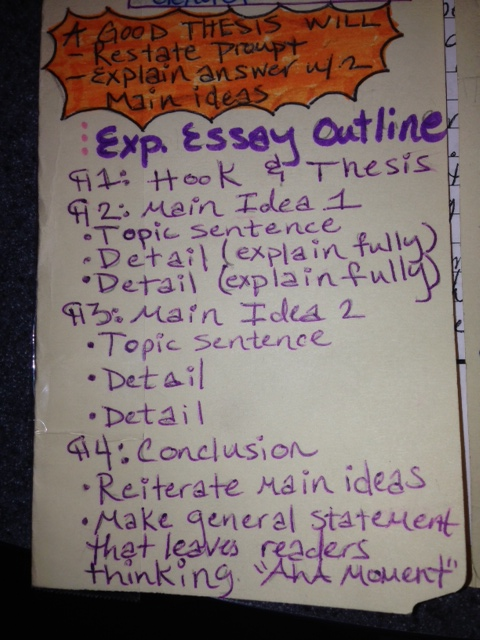 A GOOD THESIS WILL
- Restate Prompt
- Explain answer w/ 2
Main ideas
Exp. Essay Outline
¶1: Hook & Thesis
¶2: Main Idea 1
• Topic sentence
• Detail (explain fully)
• Detail (explain fully)
¶3: Main Idea 2
• Topic sentence
• Detail
• Detail
¶4: Conclusion
• Reiterate Main ideas
• Make general statement
that leaves readers
thinking. "AhA Moment"